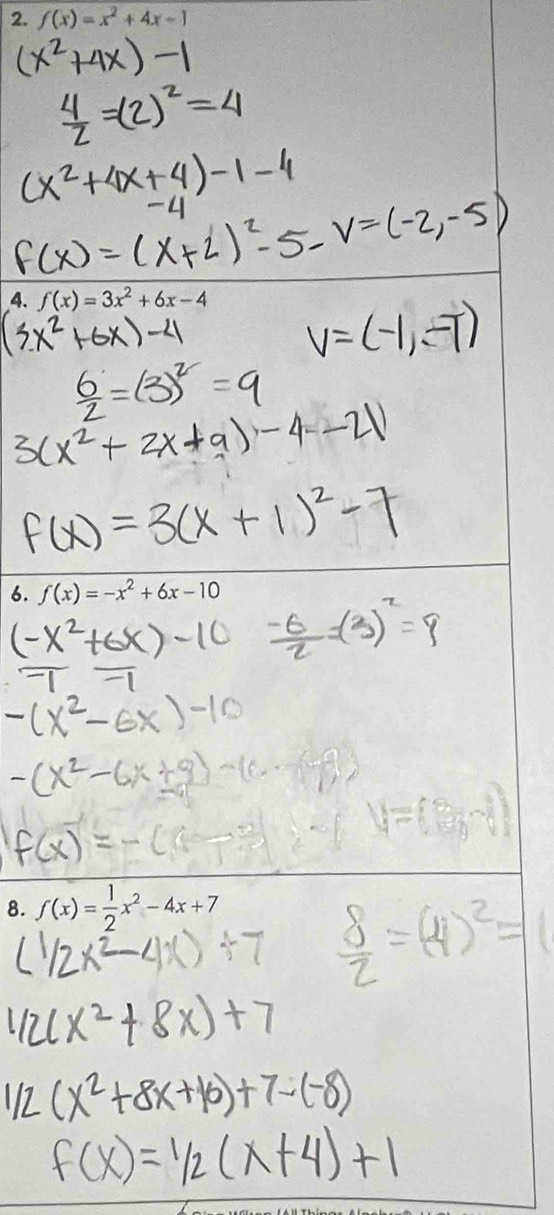 2. f(x) = x² + 4x - 1
(x² + 4x) - 1
4/2 = (2)² = 4
(x² + 4x + 4) - 1 - 4
-4
f(x) = (x + 2)² - 5 - V = (-2, -5)
4. f(x) = 3x² + 6x - 4
(3x² + 6x) - 4 V = (-1, -7)
6/2 = (3)² = 9
3(x² + 2x + 9) - 4 -
f(x) = 3(x + 1)² - 7
6. f(x) = -x² + 6x - 10
(-x² + 6x) - 10 -6/2 = (3)² = 9
-1 -1
-(x² - 6x) - 10
-(x² - 6x + 9)
-9
f(x) = -( V = (
8. f(x) = 1/2 x² - 4x + 7
(1/2x² - 4x) + 7 8/2 = (4)² =
1/2(x² + 8x) + 7
1/2 (x² + 8x + 16) + 7 - (-8)
f(x) = 1/2 (x + 4) + 1